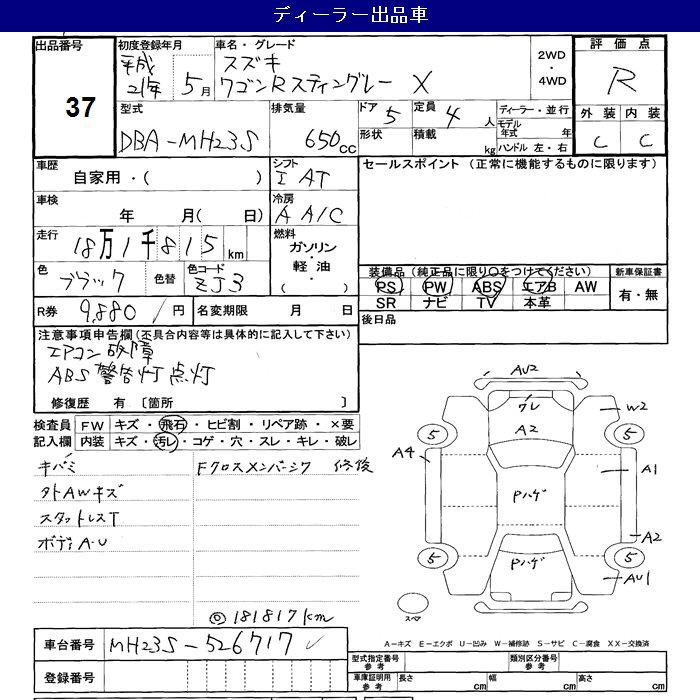 ディーラー出品車
出品番号 初度登録年月 車名・グレード 2WD・4WD 評価点
37 平成21年5月 スズキ R
ワゴンRスティングレー X
外装 内装
C C
型式 排気量 ドア 定員 ディーラー・並行
DBA-MH23S 650cc 5 4人 モデル年式 年
形状 積載 kg ハンドル 左・右
車歴 シフト セールスポイント (正常に機能するものに限ります)
自家用・( ) I AT
車検 冷房
年 月( 日) A A/C
走行 燃料
18万1千815km ガソリン・軽油・
色 色替 色コード 装備品 (純正品に限り○をつけてください) 新車保証書
ブラック ZJ3 PS PW ABS エアB AW 有・無
SR ナビ TV 本革
R券 9,880円 名変期限 月 日 後日品
注意事項申告欄(不具合内容等は具体的に記入して下さい)
エアコン故障
ABS警告灯点灯
修復歴 有〔箇所 〕
検査員 FW キズ・飛石・ヒビ割・リペア跡・×要
記入欄 内装 キズ・汚レ・コゲ・穴・スレ・キレ・破レ
キバミ Fクロスメンバーシワ 修後
外AWキズ
スタットレスT
ボディA・U
◎181817km
AU2
ワレ W2
A2
5 5
A4 A1
Pハゲ
A2
5 Pハゲ 5
AU1
スペア
A-キズ E-エクボ U-凹み W-補修跡 S-サビ C-腐食 XX-交換済
車台番号 MH23S-526717 ✓
型式指定番号 参考 類別区分番号 参考
登録番号
車庫証明用 参考 長さ cm 幅 cm 高さ cm